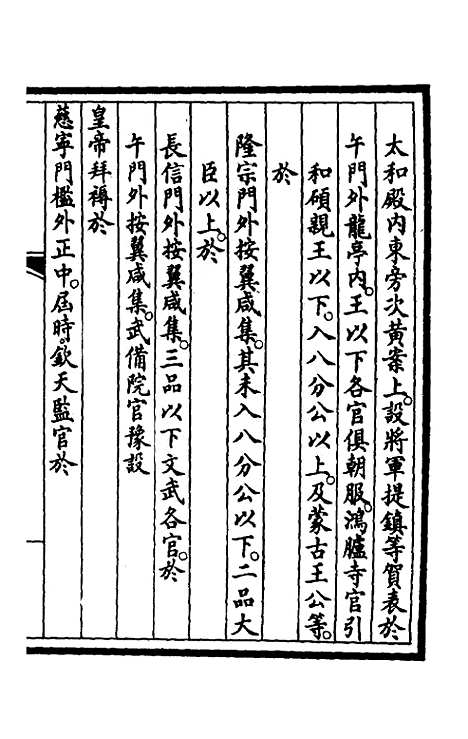 太和殿內東旁次黃案上。設將軍提鎮等賀表於
午門外龍亭內。王以下各官俱朝服。鴻臚寺官引
和碩親王以下。入八分公以上。及蒙古王公等。
於
隆宗門外按翼咸集。其未入八分公以下。二品大
臣以上。於
長信門外按翼咸集。三品以下文武各官。於
午門外按翼咸集。武備院官豫設
皇帝拜褥於
慈寧門檻外正中。屆時。欽天監官於